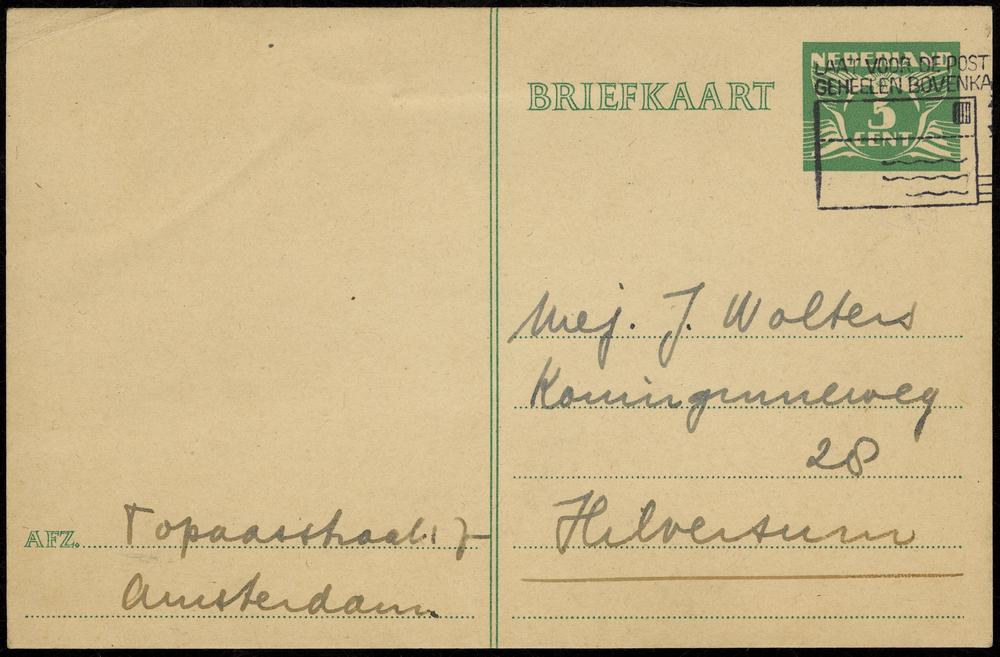 BRIEFKAART
NEDERLAND
5
CENT
LAAT VOOR DE POST
GEHEELEN BOVENKA
Mej. J. Wolters
Koninginneweg
28
Hilversum
AFZ. Topaasstraat 17
Amsterdam.